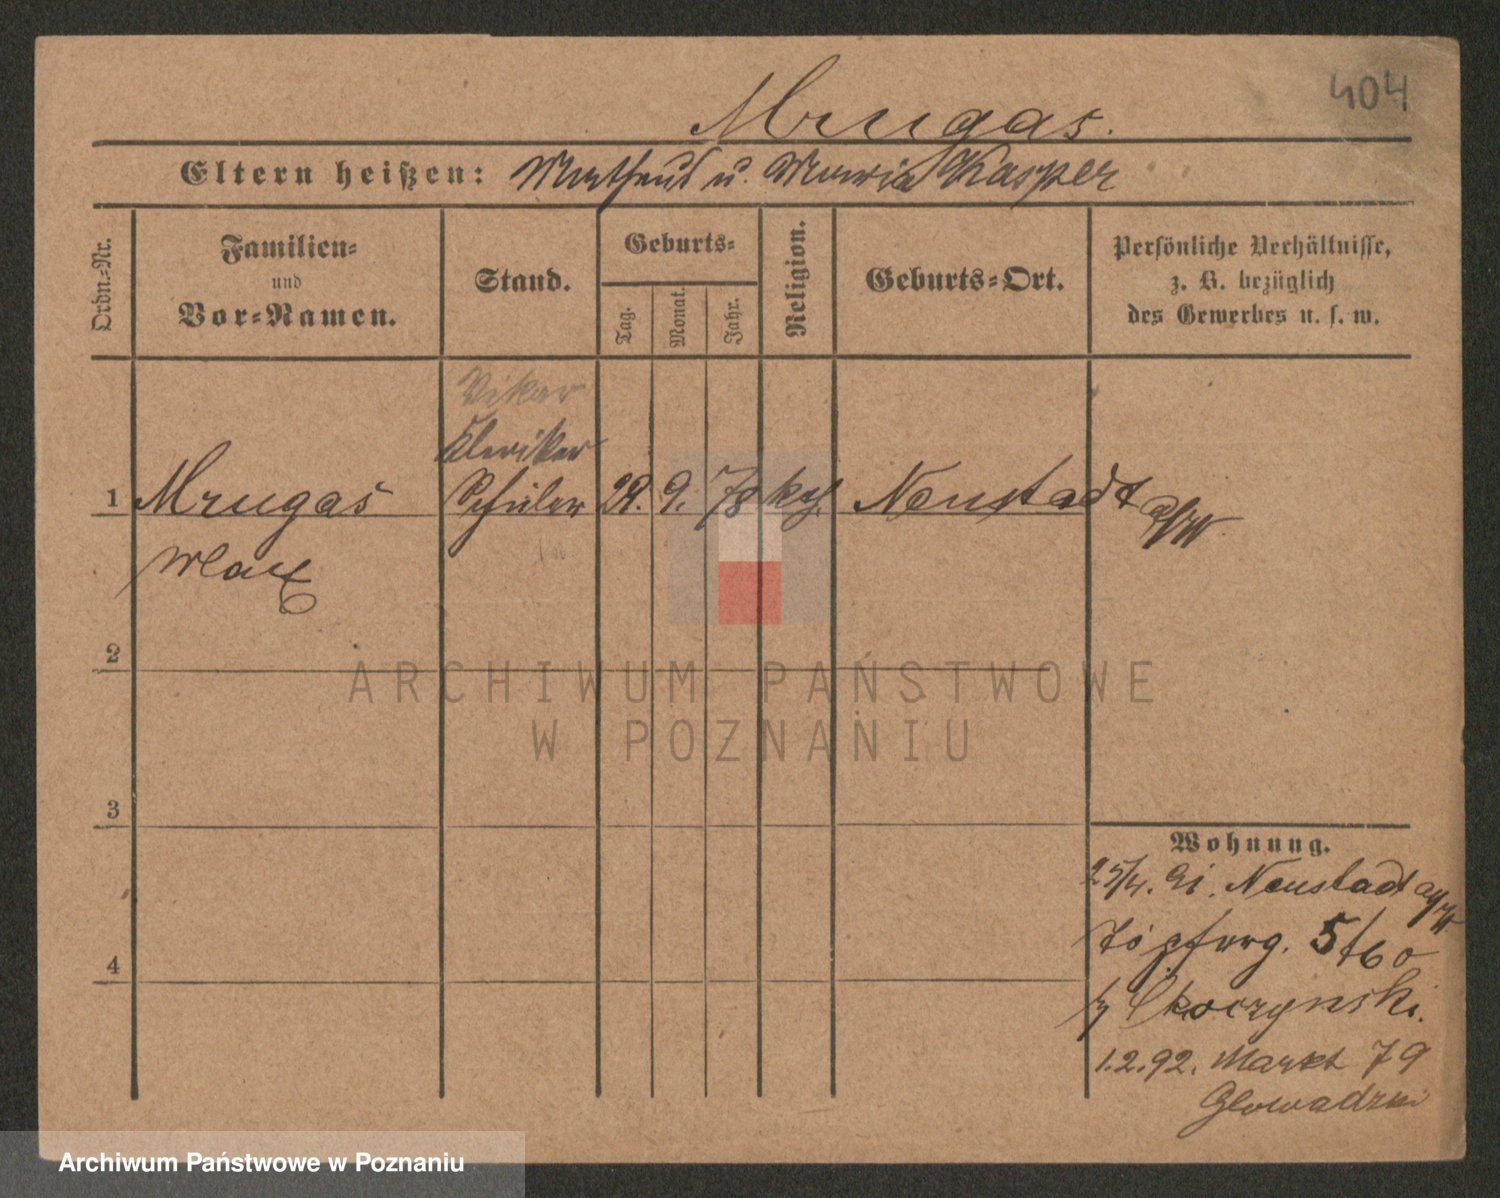 404
Mrugas.
Eltern heißen: Matheus u. Maria Kasper
Ordn.=Nr.
Familien=
und
Vor=Namen.
Stand.
Geburts=
Tag.
Monat.
Jahr.
Religion.
Geburts=Ort.
Persönliche Verhältnisse,
z. B. bezüglich
des Gewerbes u. s. w.
Vikar
Kleriker
1 Mrugas Schüler 28. 9. 78 kth. Neustadt a/W
Max
2
3
4
Wohnung.
25/4. 91. Neustadt a/W
Töpferg. 5 / 60
b/ Skoczynski.
1.2.92. Markt 79
ARCHIWUM PAŃSTWOWE
W POZNANIU
Archiwum Państwowe w Poznaniu